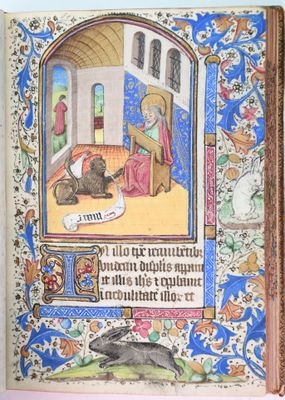 IN illo tpe recumbetib
undecim displis apparu
it illis ihs et exprobauit
icredulitate illor et